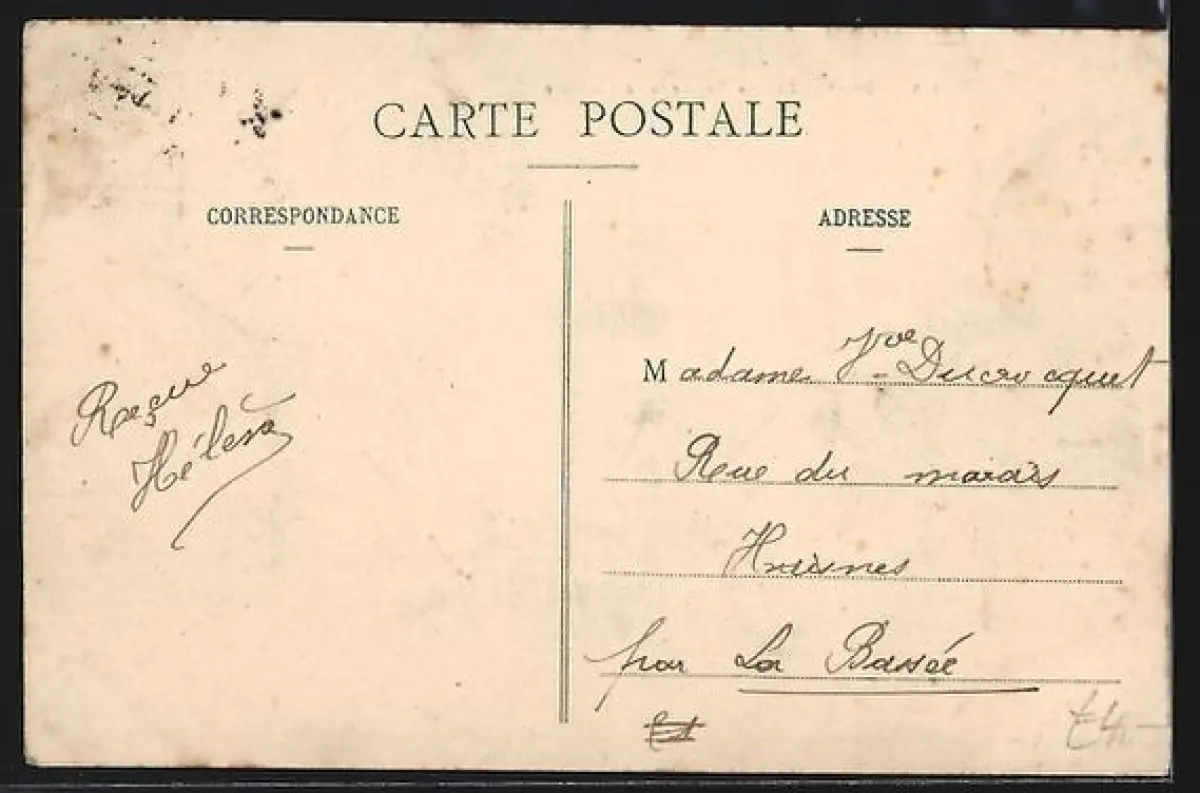 CARTE POSTALE
CORRESPONDANCE
Reçue
Hélèna
ADRESSE
Madame Vve Ducrocquet
Rue du marais
par La Bassée